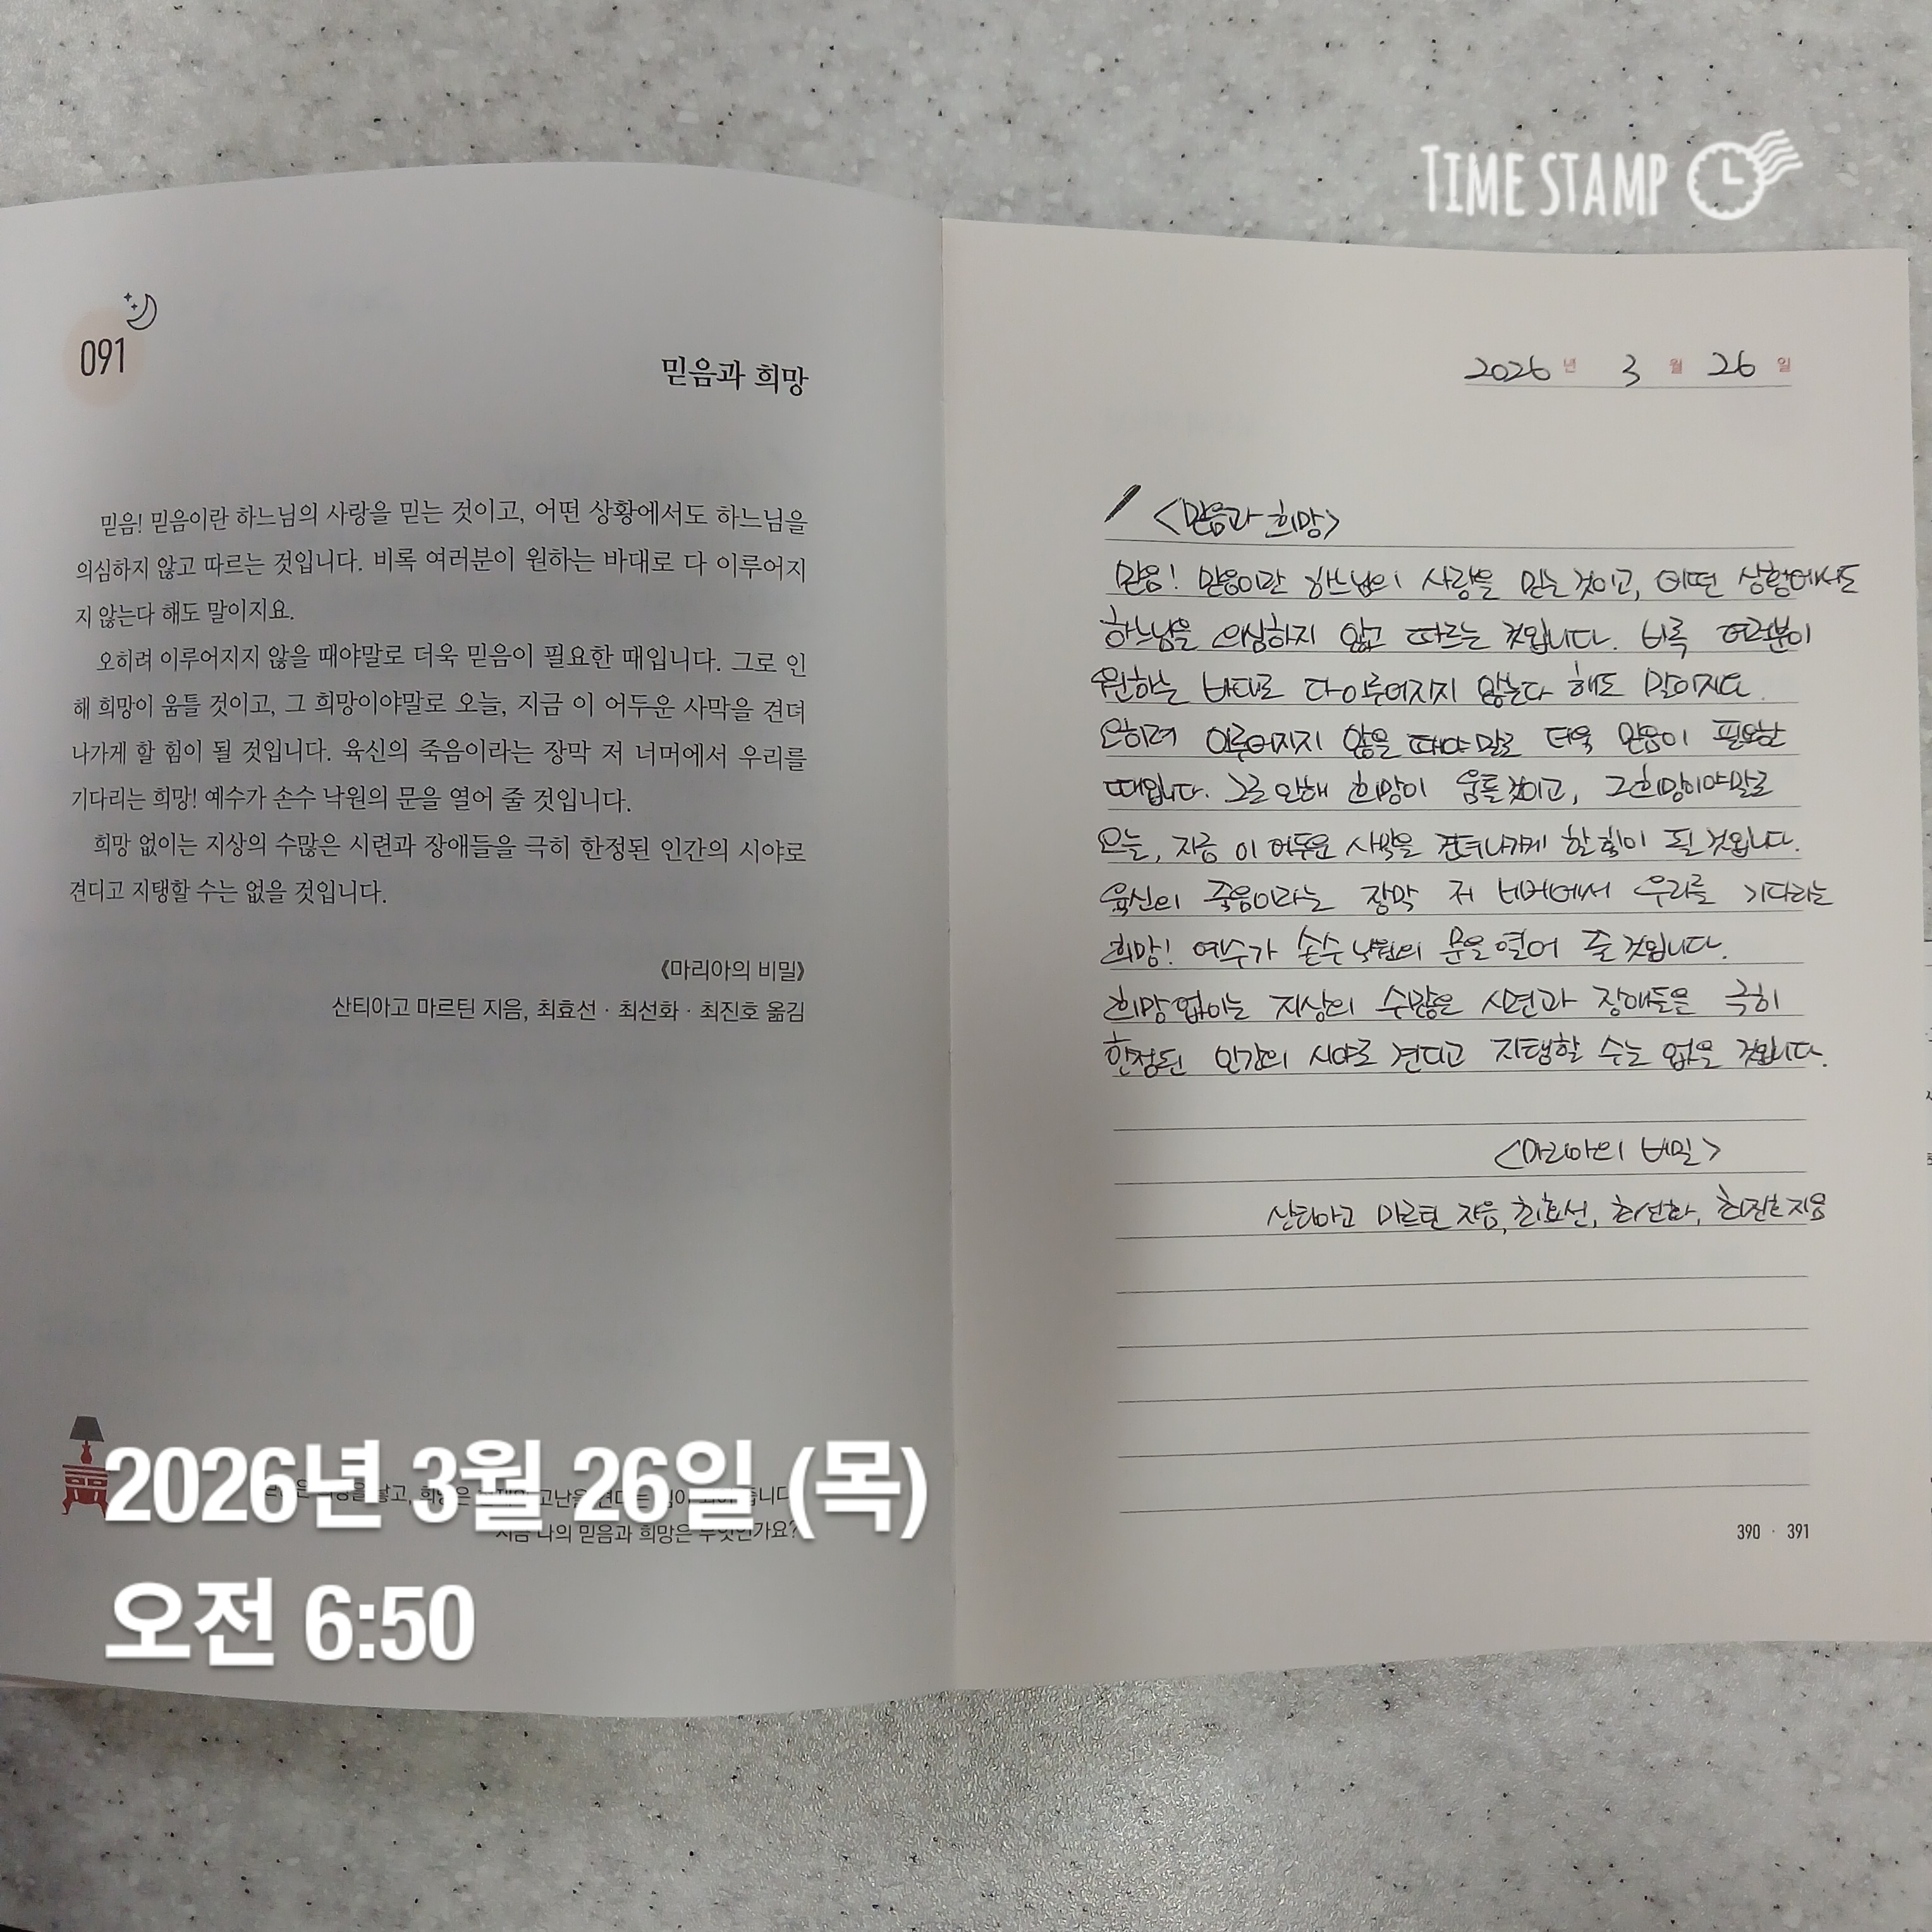 TIME STAMP
091
믿음과 희망
믿음! 믿음이란 하느님의 사랑을 믿는 것이고, 어떤 상황에서도 하느님을
의심하지 않고 따르는 것입니다. 비록 여러분이 원하는 바대로 다 이루어지
지 않는다 해도 말이지요.
오히려 이루어지지 않을 때야말로 더욱 믿음이 필요한 때입니다. 그로 인
해 희망이 움틀 것이고, 그 희망이야말로 오늘, 지금 이 어두운 사막을 견뎌
나가게 할 힘이 될 것입니다. 육신의 죽음이라는 장막 저 너머에서 우리를
기다리는 희망! 예수가 손수 낙원의 문을 열어 줄 것입니다.
희망 없이는 지상의 수많은 시련과 장애들을 극히 한정된 인간의 시야로
견디고 지탱할 수는 없을 것입니다.
《마리아의 비밀》
산티아고 마르틴 지음, 최효선 · 최선화 · 최진호 옮김
고, 희망은 고난을
지금 나의 믿음과 희망은 무엇인가요?
2026년 3월 26일 (목)
오전 6:50
2026 년 3 월 26 일
<믿음과 희망>
믿음! 믿음이란 하느님의 사랑을 믿는 것이고, 어떤 상황에서도
하느님을 의심하지 않고 따르는 것입니다. 비록 여러분이
원하는 바대로 다 이루어지지 않는다 해도 말이지요.
오히려 이루어지지 않을 때야말로 더욱 믿음이 필요한
때입니다. 그로 인해 희망이 움틀 것이고, 그 희망이야말로
오늘, 지금 이 어두운 사막을 견뎌나가게 할 힘이 될 것입니다.
육신의 죽음이라는 장막 저 너머에서 우리를 기다리는
희망! 예수가 손수 낙원의 문을 열어 줄 것입니다.
희망 없이는 지상의 수많은 시련과 장애들을 극히
한정된 인간의 시야로 견디고 지탱할 수는 없을 것입니다.
<마리아의 비밀>
산티아고 마르틴 지음, 최효선, 최선화, 최진호 지음
390 · 391